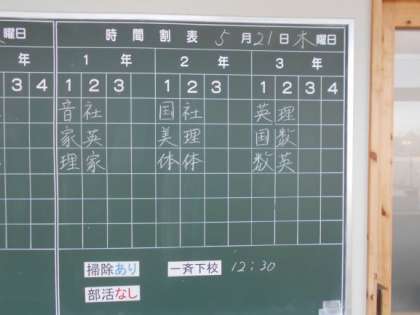 曜日
時間割表 5月21日木曜日
年 1年 2年 3年
3 4 1 2 3 1 2 3 1 2 3 4
音 社 国 社 英 理
家 英 美 理 国 数
理 家 体 体 数 英
掃除あり 一斉下校 12:30
部活なし